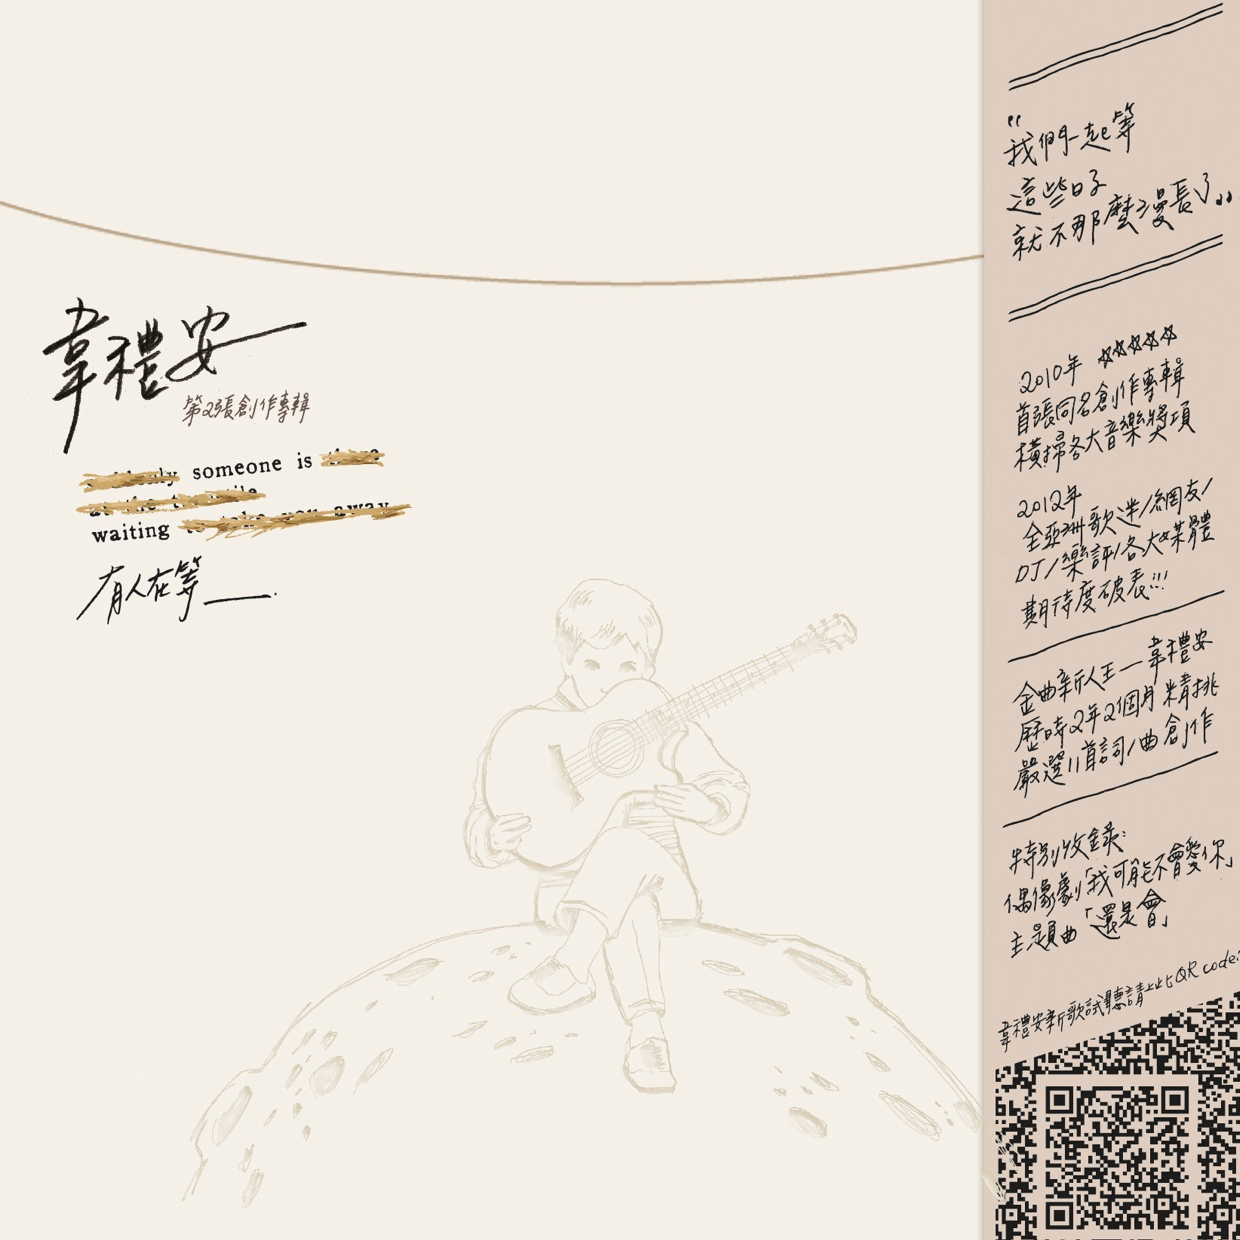 韋禮安
第2張創作專輯
suddenly someone is there
at the turnstile
waiting to take you away
有人在等
“我們一起等
這些日子
就不那麼漫長了„
2010年 ☆☆☆☆☆
首張同名創作專輯
橫掃各大音樂獎項
2012年
全亞洲歌迷/網友/
DJ/樂評/各大媒體
期待度破表!!!
金曲新人王—韋禮安
歷時2年2個月精挑
嚴選11首詞/曲創作
特別收錄:
偶像劇「我可能不會愛你」
主題曲「還是會」
韋禮安新歌試聽請上此QR code: